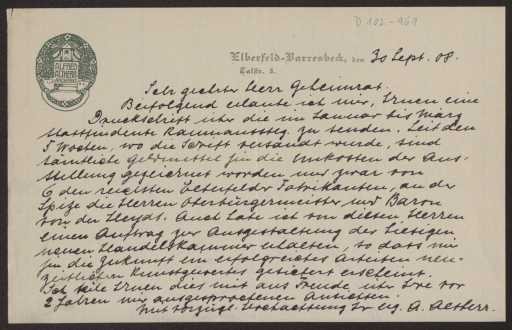 D 102-969
ALFRED
ALTHERR
ARCHITEKT
Elberfeld-Varresbeck, den 30 Sept. 08.
Talstr. 3.
Sehr geehrter Herr Geheimrat.
Beifolgend erlaube ich mir, Ihnen eine
Druckschrift über die im Januar bis März
stattfindende Raumausstlg. zu senden. Seit den
5 Wochen, wo die Schrift versandt wurde, sind
sämtliche Geldmittel für die Unkosten der Aus-
stellung gezeichnet worden und zwar von
6 den reichsten Elberfelder Fabrikanten, an der
Spize die Herren Oberbürgermeister und Baron
von der Heydt. Auch habe ich von diesen Herren
einen Auftrag zur Ausgestaltung der hiesigen
neuen Handelskammer erhalten, so dass mir
für die Zukunft ein erfolgreiches Arbeiten neu-
zeitlichen Kunstgewerbes gesichert erscheint.
Ich teile Ihnen dies mit aus Freude über Ihre vor
2 Jahren mir ausgesprochenen Ansichten.
Mit vorzügl. Hochachtung Ihr erg. A. Altherr.